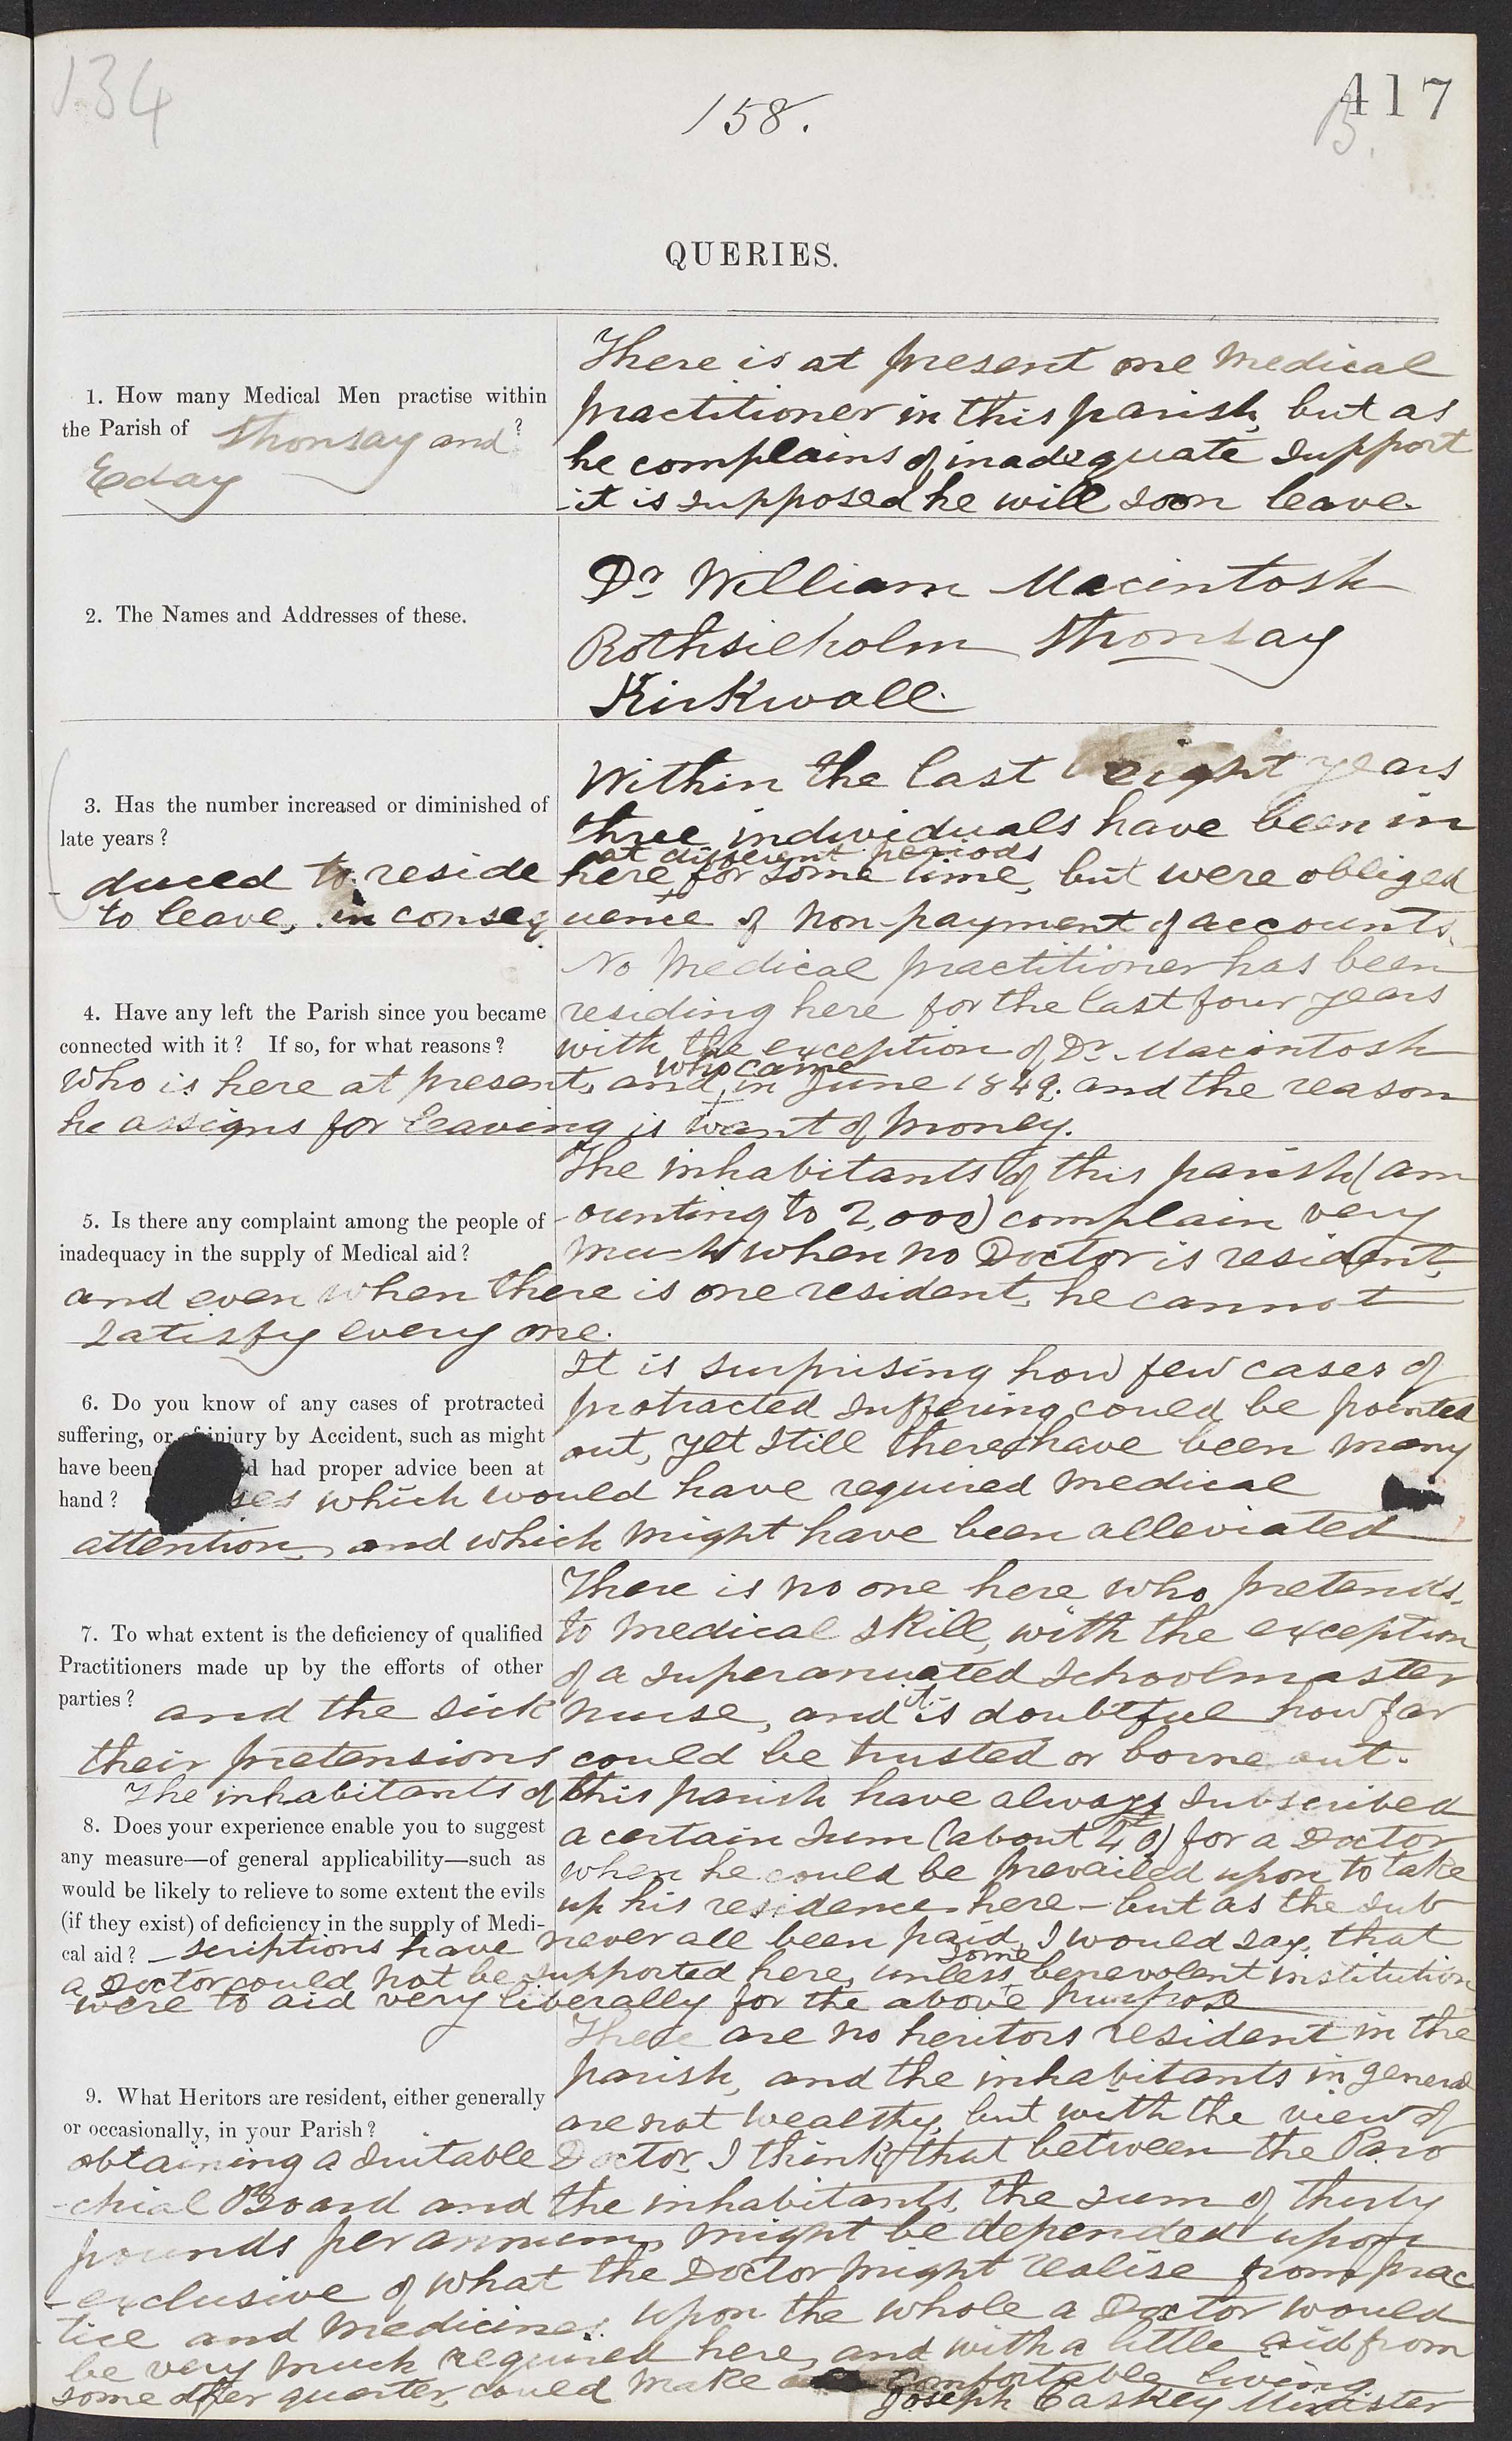 134
158.
417
B.
QUERIES.
1. How many Medical Men practise within
the Parish of Stronsay and ?
Eday
There is at present one medical
practitioner in this parish, but as
he complains of inadequate support
it is supposed he will soon leave.
2. The Names and Addresses of these.
Dr. William Macintosh
Rothsieholm Stronsay
Kirkwall.
3. Has the number increased or diminished of
late years?
Within the last eight years
three individuals have been in
at different periods
duced to reside here, for some time, but were obliged
to leave, in consequence of non-payment of accounts.
4. Have any left the Parish since you became
connected with it? If so, for what reasons?
No medical practitioner has been
residing here for the last four years
with the exception of Dr. Macintosh
who came
who is here at present, and in June 1849. and the reason
he assigns for leaving is want of money.
5. Is there any complaint among the people of
inadequacy in the supply of Medical aid?
The inhabitants of this parish (am
-ounting to 2,000) complain very
much when no Doctor is resident,
and even when there is one resident, he cannot
satisfy every one.
6. Do you know of any cases of protracted
suffering, or of injury by Accident, such as might
have been d had proper advice been at
hand?
It is surprising how few cases of
protracted suffering could be pointed
out, yet still there have been many
ses which would have required medical
attention, and which might have been alleviated
7. To what extent is the deficiency of qualified
Practitioners made up by the efforts of other
parties?
There is no one here who pretends
to medical skill, with the exception
of a superanuated schoolmaster
it
and the sick nurse, and is doubtful how far
their pretensions could be trusted or borne out.
The inhabitants of this parish have always subscribed
8. Does your experience enable you to suggest
any measure—of general applicability—such as
would be likely to relieve to some extent the evils
(if they exist) of deficiency in the supply of Medi-
cal aid?
a certain sum (about 40) for a Doctor
when he could be prevailed upon to take
up his residence here – but as the sub
scriptions have never all been paid, I would say, that
some
a Doctor could not be supported here, unless benevolent institution
were to aid very liberally for the above purpose
9. What Heritors are resident, either generally
or occasionally, in your Parish?
There are no heritors resident in the
parish, and the inhabitants in general
are not wealthy, but with the view of
obtaining a suitable Doctor, I think that between the Paro
-chial Board and the inhabitants, the sum of thirty
pounds per annum, might be depended upon
-exclusive of what the Doctor might realise from prac
tice and medicines. Upon the whole a Doctor would
be very much required here, and with a little aid from
some other quarter, could make a comfortable living
Joseph Caskey Minister